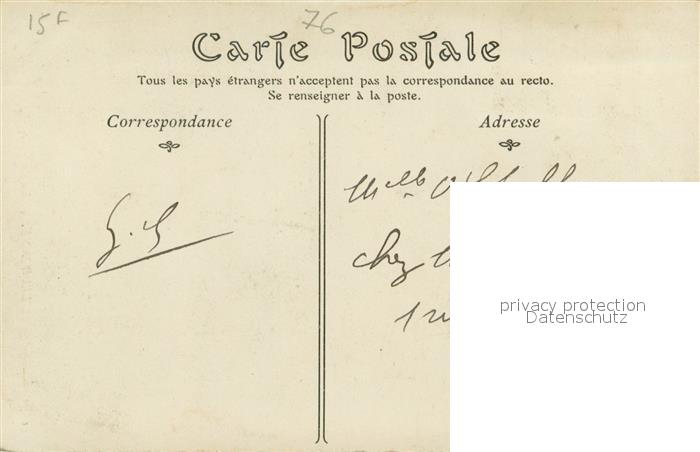 15F
76
Carte Postale
Tous les pays étrangers n'acceptent pas la correspondance au recto.
Se renseigner à la poste.
Correspondance
Adresse
Melle
chez
1
privacy protection
Datenschutz